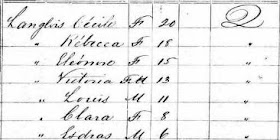 Langlois Cécile F 20 Q
" Rébecca F 18 "
" Eléonore F 15 "
" Victoria F 13 "
" Louis M 11 "
" Clara F 8 "
" Esdras M 6 "